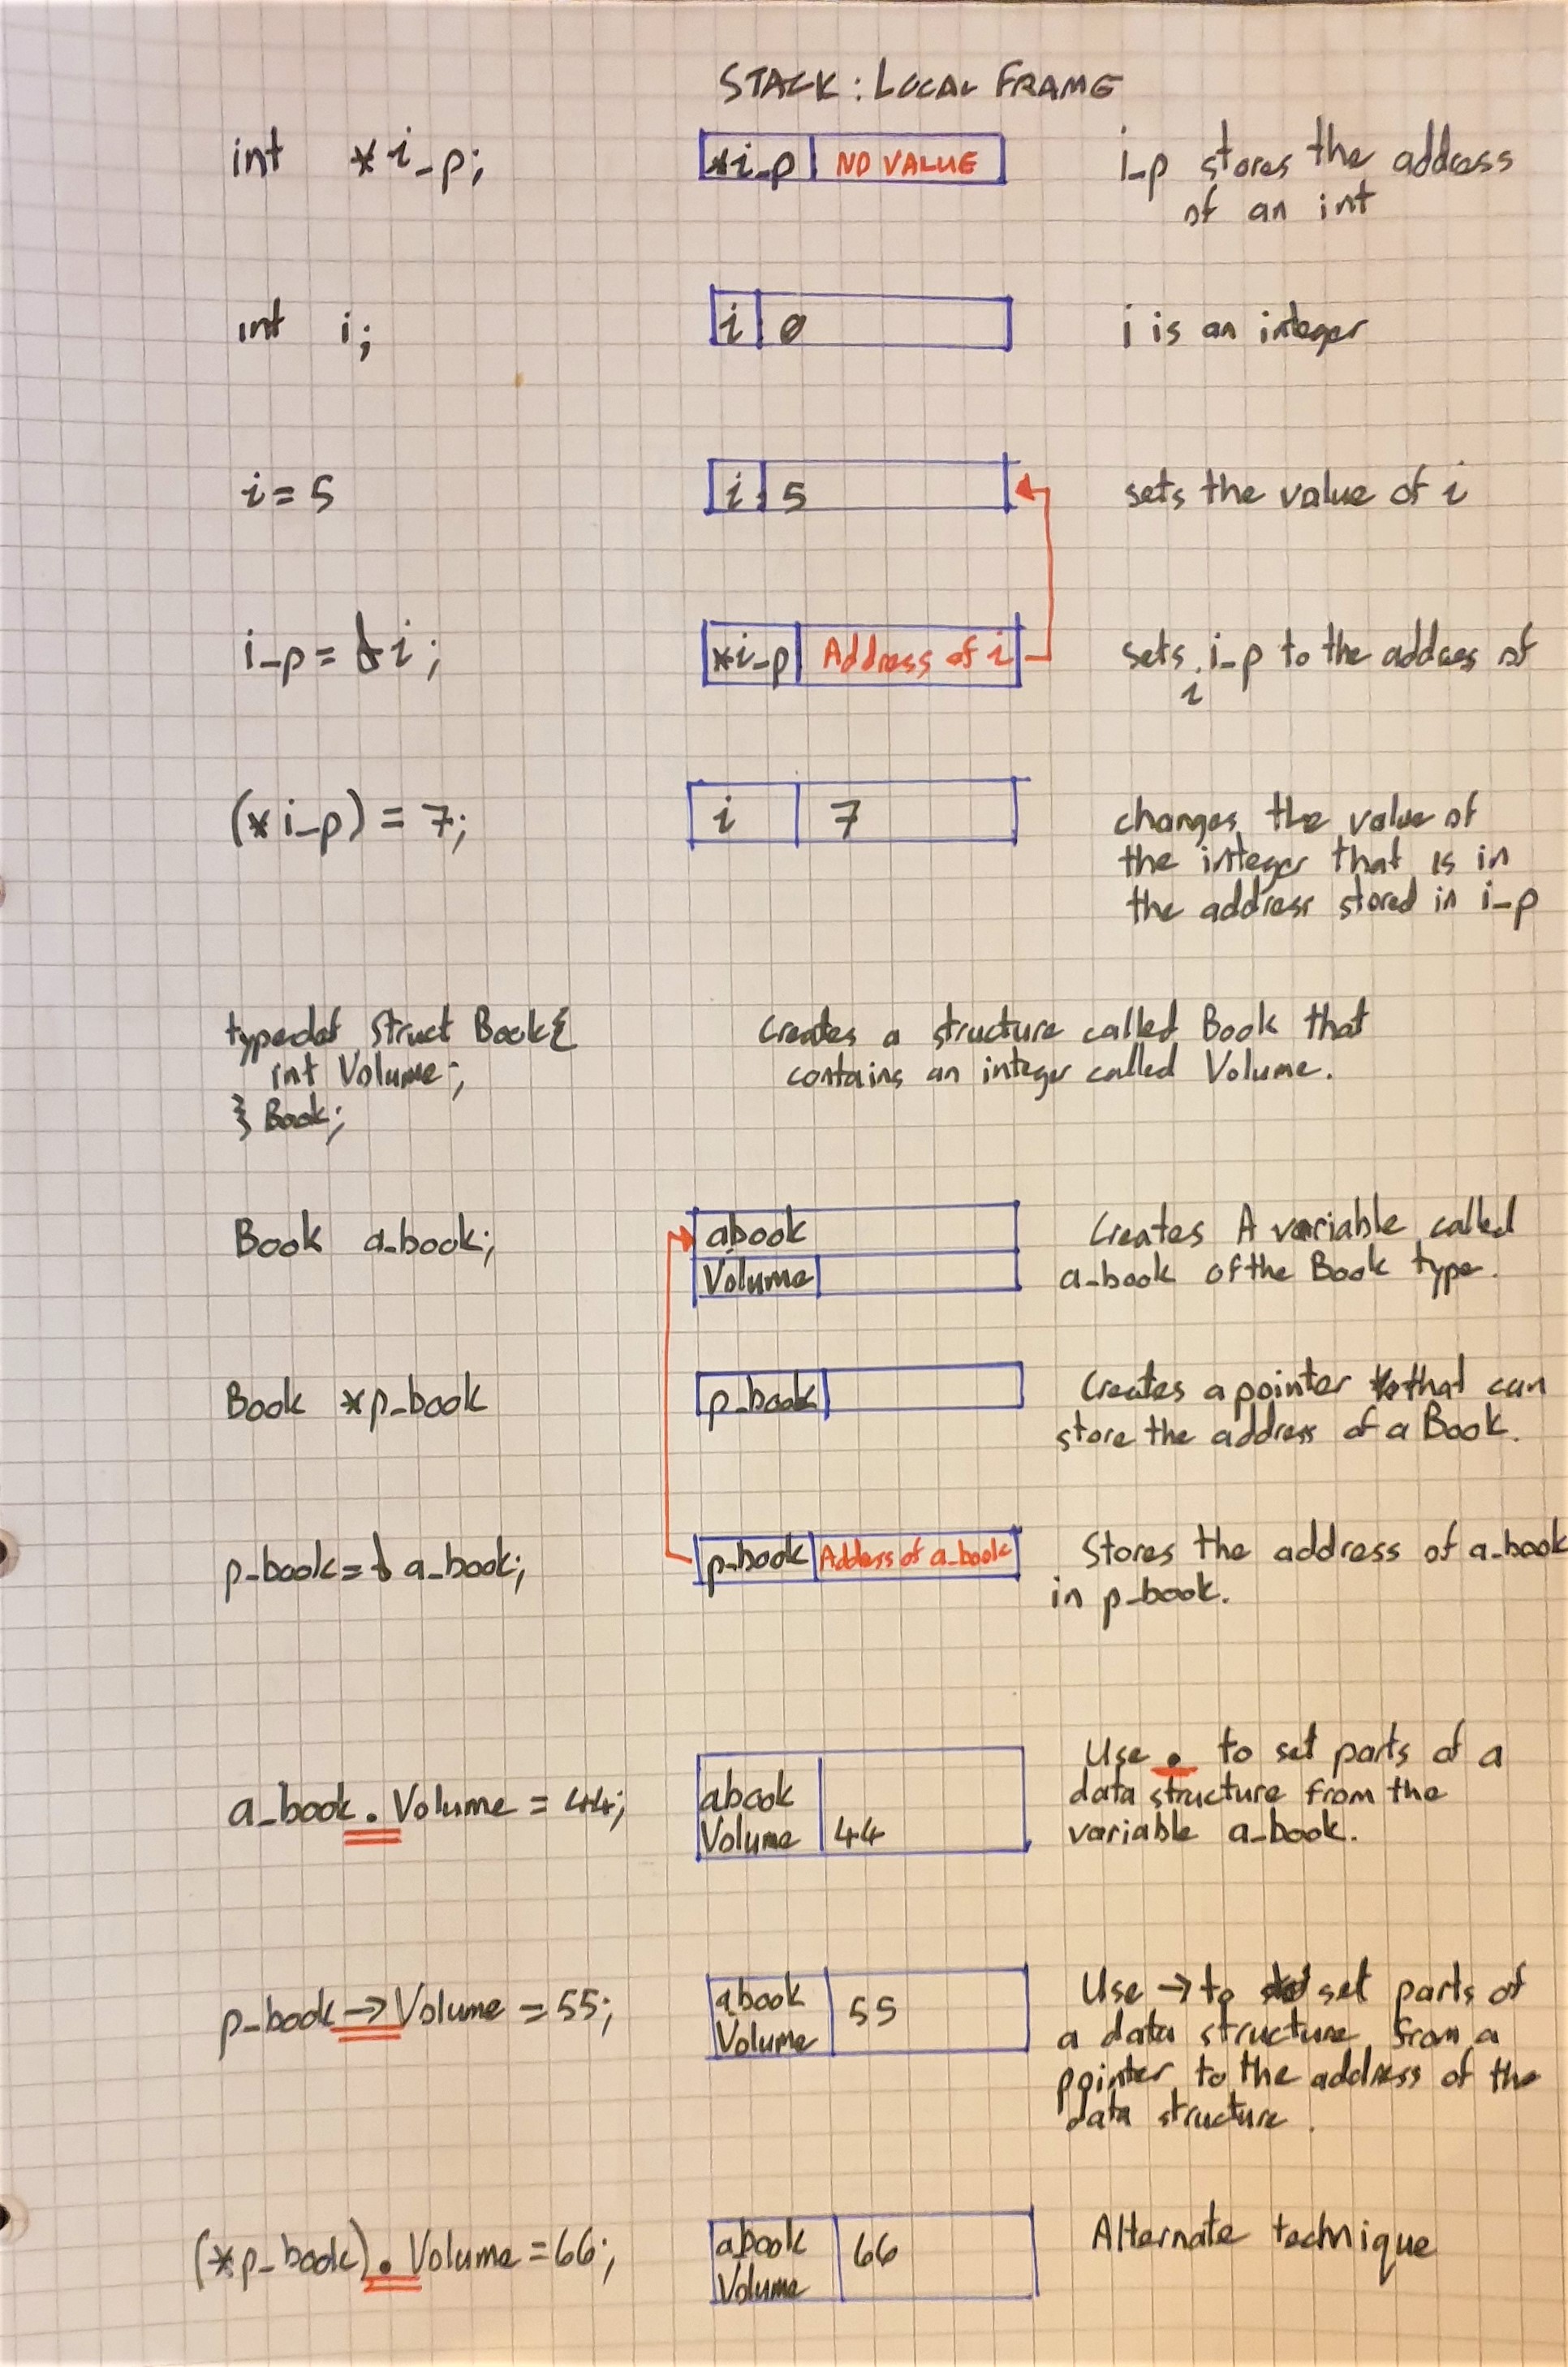 STACK : LOCAL FRAME
int *i_p;
*i_p NO VALUE
i_p stores the address
of an int
int i;
i 0
i is an integer
i = 5
i 5
sets the value of i
i_p = & i;
*i_p Address of i
sets i_p to the addres of
i
(*i_p) = 7;
i 7
changes the value of
the integer that is in
the address stored in i_p
typedef Struct Book{
int Volume;
} Book;
Creates a structure called Book that
contains an integer called Volume.
Book a_book;
abook
Volume
Creates A variable called
a_book of the Book type.
Book *p_book
p_book
Creates a pointer that can
store the address of a Book.
p_book = & a_book;
p_book Address of a_book
Stores the address of a_book
in p_book.
a_book . Volume = 44;
abook
Volume 44
Use . to set parts of a
data structure from the
variable a_book.
p_book → Volume = 55;
abook 55
Volume
Use → to set parts of
a data structure from a
pointer to the address of the
data structure.
(*p_book) . Volume = 66;
abook 66
Volume
Alternate technique